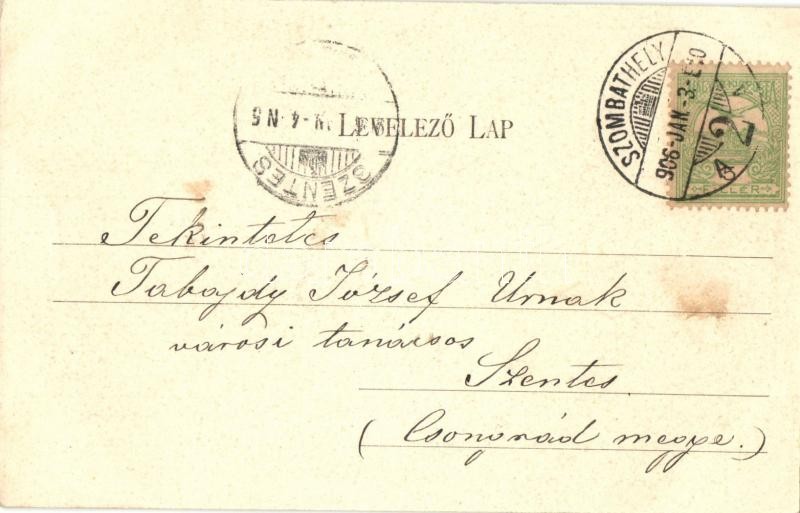 LEVELEZŐ LAP
SZOMBATHELY
906 JAN. 3
SZENTES
FILLÉR
Tekintetes
Tabajdy József Urnak
városi tanácsos
Szentes
(Csongrád megye.)